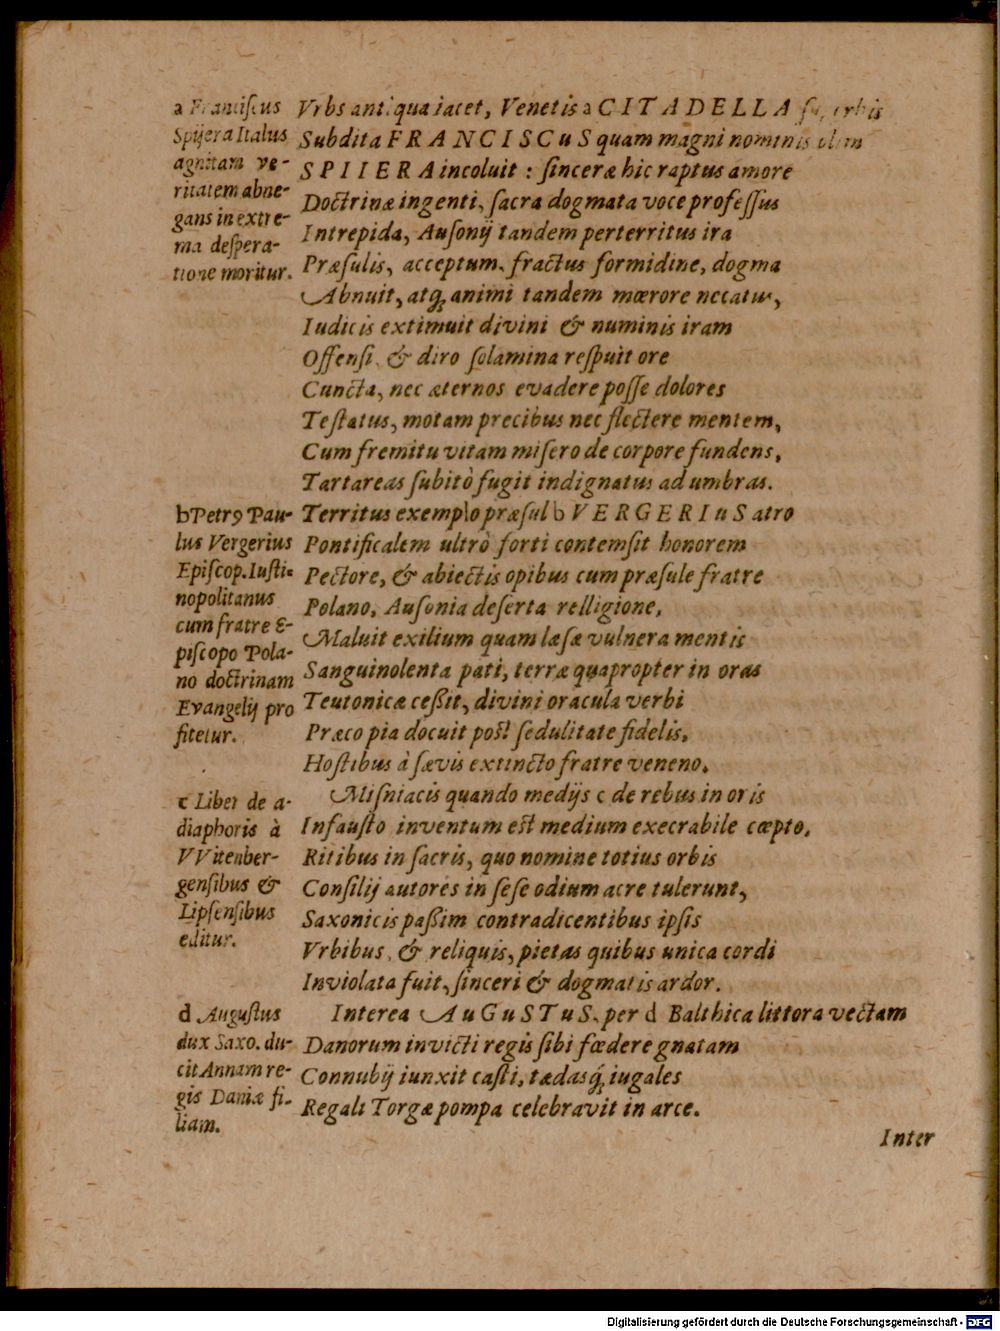 a Franciſcus
Spijera Italus
agnitam ve-
ritatem abne-
gans in extre-
ma deſpera-
tione moritur.
Vrbs antiqua iacet, Venetis a CITADELLA ſuperbis
Subdita FRANCISCuS quam magni nominis olim
SPIIERA incoluit : ſinceræ hic raptus amore
Doctrinæ ingenti, ſacra dogmata voce profeſſus
Intrepida, Auſonij tandem perterritus ira
Præſulis, acceptum, fractus formidine, dogma
Abnuit, atq́; animi tandem mœrore necatus,
Iudicis extimuit divini & numinis iram
Offenſi, & diro ſolamina reſpuit ore
Cuncta, nec æternos evadere poſſe dolores
Teſtatus, motam precibus nec flectere mentem,
Cum fremitu vitam miſero de corpore fundens,
Tartareas ſubitò fugit indignatus ad umbras.
b Petrꝰ Pau-
lus Vergerius
Epiſcop. Iuſti-
nopolitanus
cum fratre E-
piſcopo Pola-
no doctrinam
Evangelij pro
fitetur.
Territus exemplo præſul b VERGERIuS atro
Pontificalem ultrò forti contemſit honorem
Pectore, & abiectis opibus cum præſule fratre
Polano, Auſonia deſerta relligione,
Maluit exilium quam læſæ vulnera mentis
Sanguinolenta pati, terræ quapropter in oras
Teutonicæ ceßit, divini oracula verbi
Præco pia docuit poſt ſedulitate fidelis,
Hoſtibus à ſævis extincto fratre veneno.
c Liber de a-
diaphoris à
VVitenber-
genſibus &
Lipſenſibus
editur.
Miſniacis quando medijs c de rebus in oris
Infauſto inventum eſt medium execrabile cœpto,
Ritibus in ſacris, quo nomine totius orbis
Conſilij autores in ſeſe odium acre tulerunt,
Saxonicis paßim contradicentibus ipſis
Vrbibus, & reliquis, pietas quibus unica cordi
Inviolata fuit, ſinceri & dogmatis ardor.
d Auguſtus
dux Saxo. du-
cit Annam re-
gis Daniæ fi-
liam.
Interea AuGuSTuS, per d Balthica littora vectam
Danorum invicti regis ſibi fœdere gnatam
Connubij iunxit caſti, tædasq́; iugales
Regali Torgæ pompa celebravit in arce.
Inter
Digitalisierung gefördert durch die Deutsche Forschungsgemeinschaft - DFG